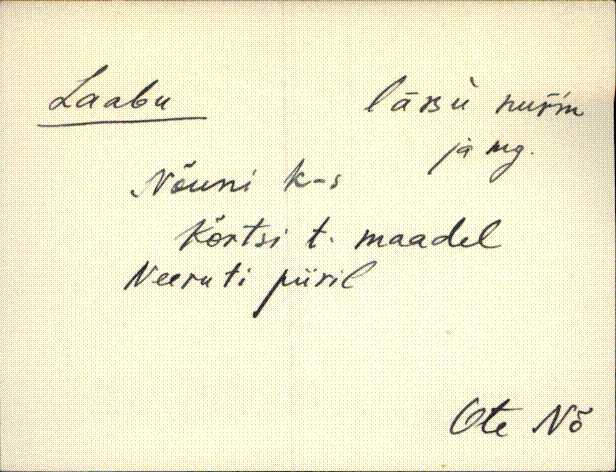 Laabu
nurm
ja mg.
Nõuni k-s
Kõrtsi t. maadel
Neeruti piiril
Ote Nõ